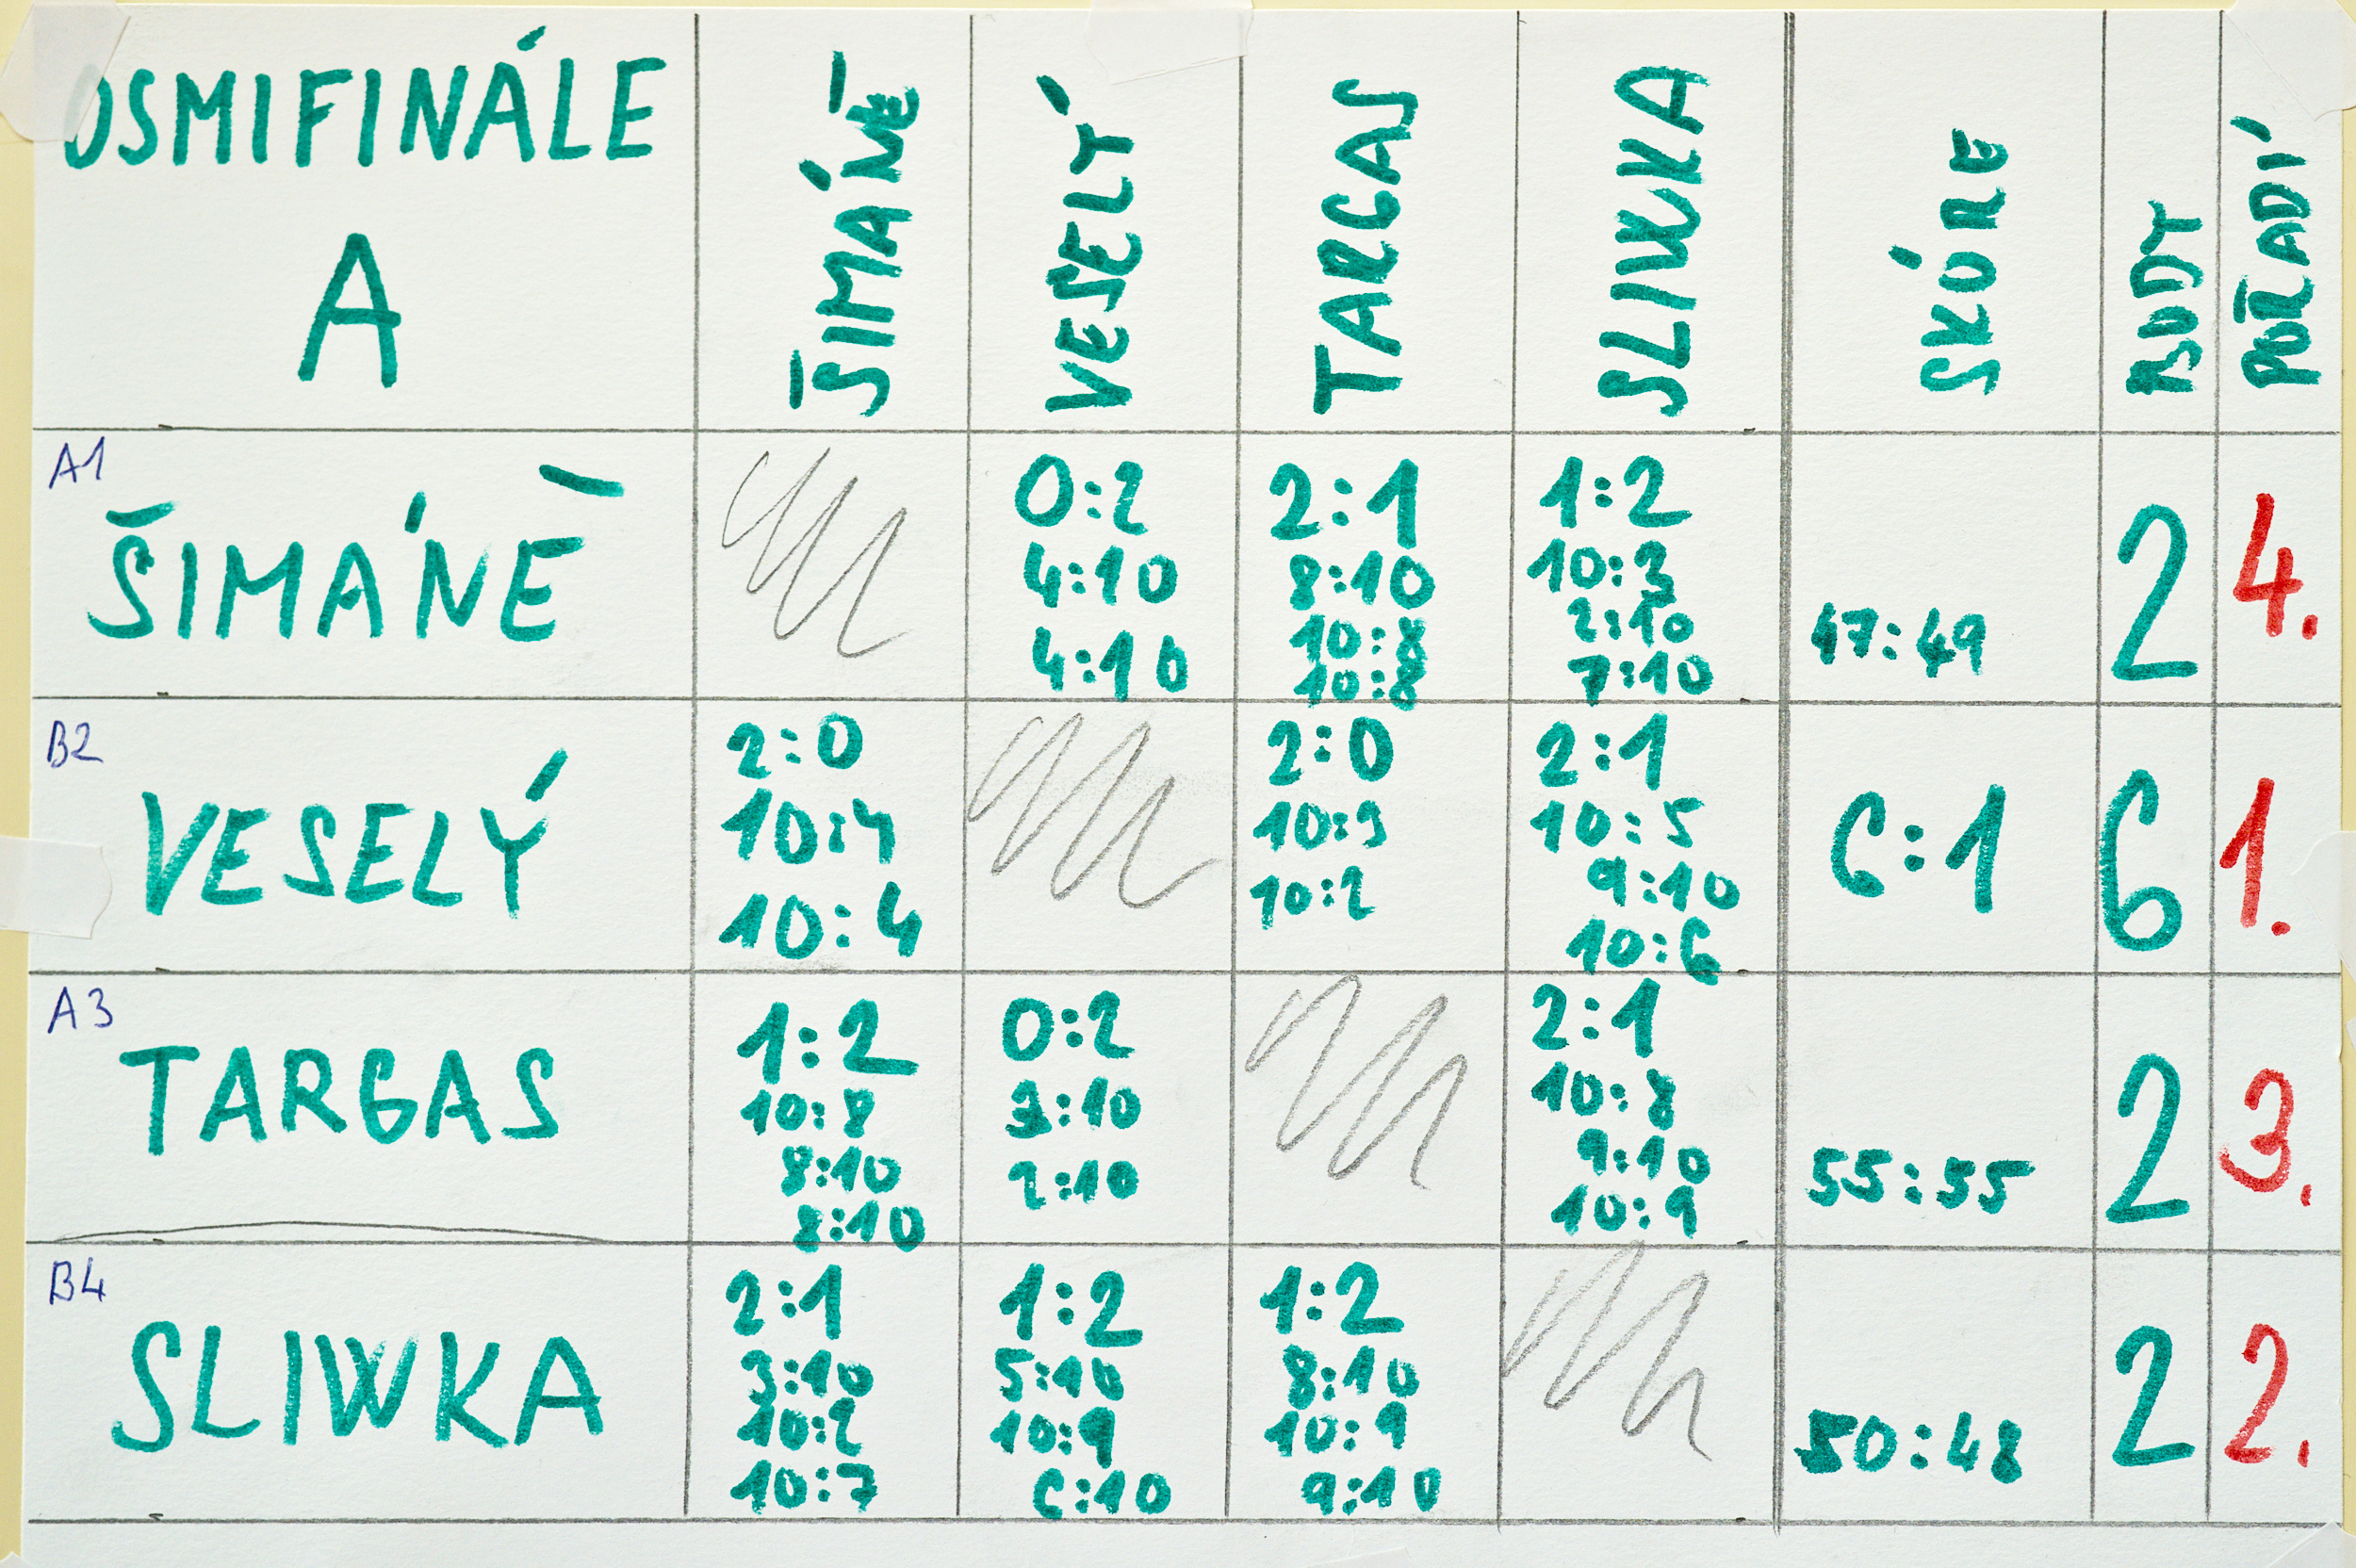 OSMIFINÁLE
A
ŠIMÁNĚ
VESELÝ
TARGAS
SLIWKA
SKÓRE
BODY
POŘADÍ
A1
ŠIMÁNĚ
0:2
4:10
4:10
2:1
8:10
10:8
10:8
1:2
10:3
2:10
7:10
47:49
2
4.
B2
VESELÝ
2:0
10:4
10:4
2:0
10:3
10:2
2:1
10:5
9:10
10:6
6:1
6
1.
A3
TARGAS
1:2
10:8
8:10
8:10
0:2
3:10
2:10
2:1
10:8
9:10
10:9
55:55
2
3.
B4
SLIWKA
2:1
3:10
10:2
10:7
1:2
5:10
10:9
6:10
1:2
8:10
10:9
9:10
50:48
2
2.